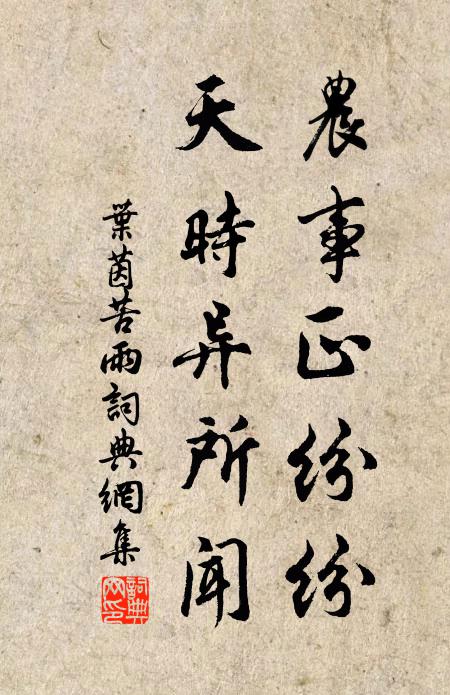 農事正紛紛
天時异所聞
葉茵苦雨詞典網集
詞典
网印